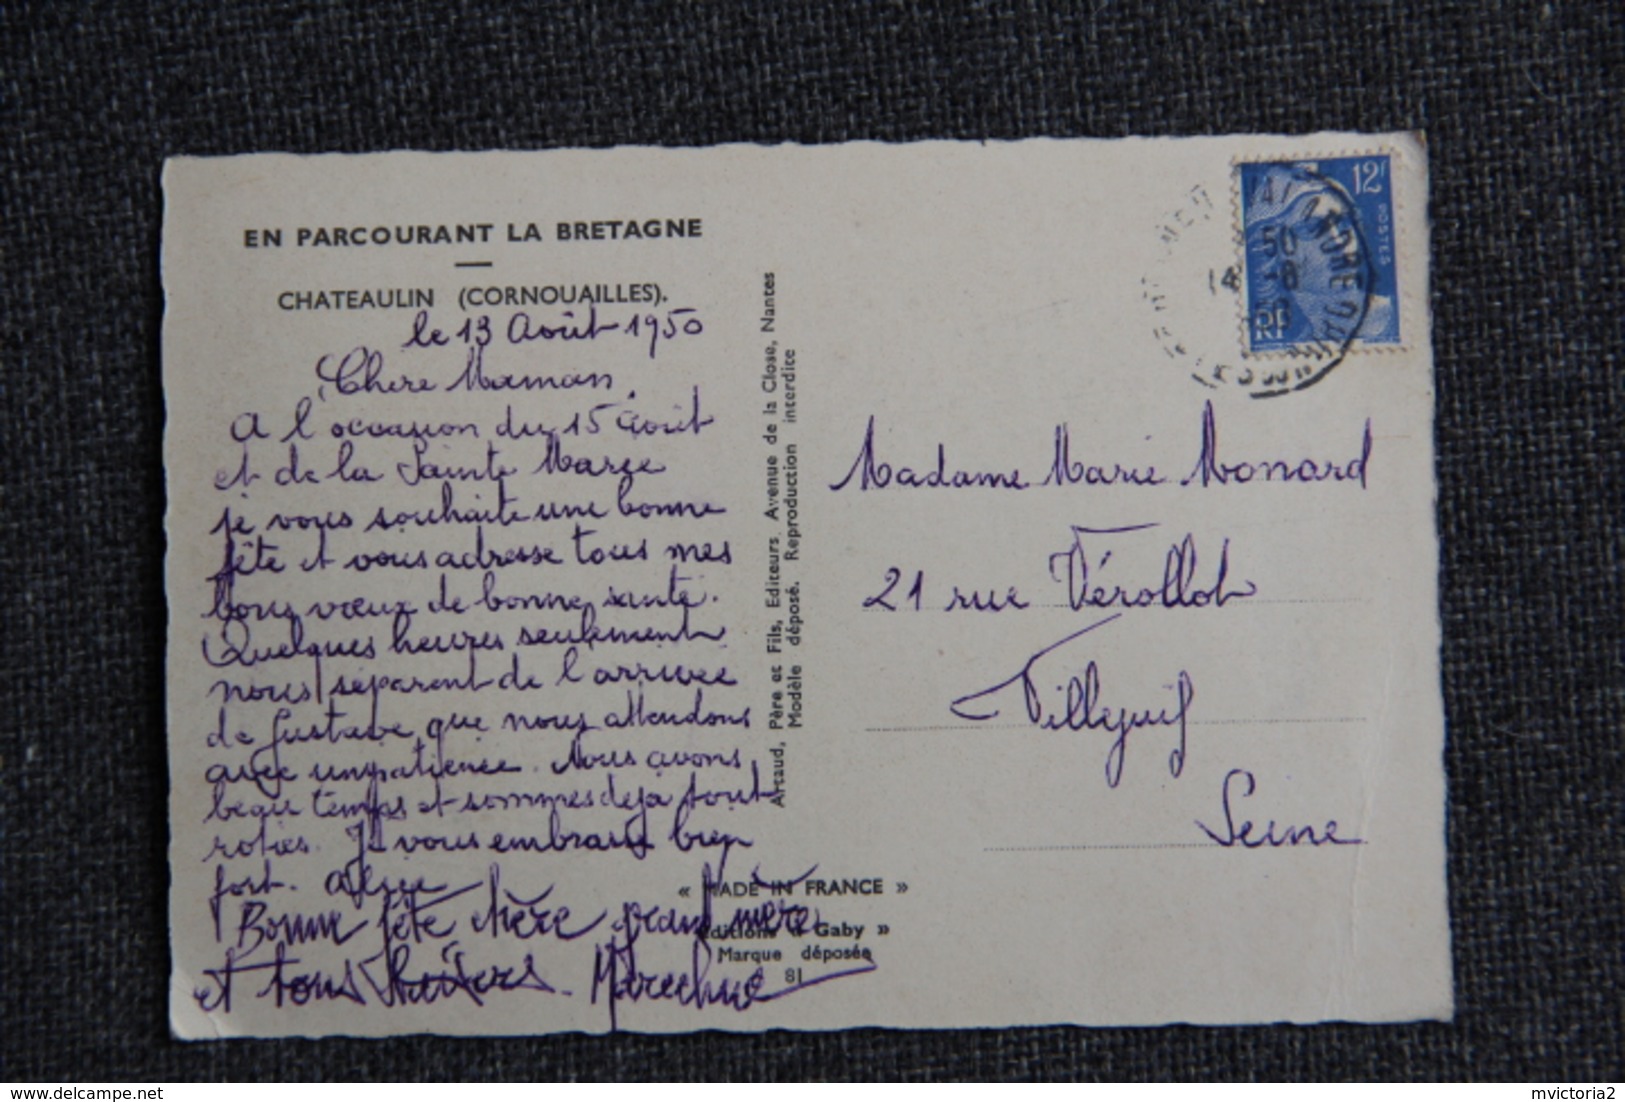 EN PARCOURANT LA BRETAGNE
CHATEAULIN (CORNOUAILLES).
le 13 Août 1950
Chère Maman,
A l'occasion du 15 Août
et de la Sainte Marie
je vous souhaite une bonne
fête et vous adresse tous mes
bons vœux de bonne santé.
Quelques heures seulement
nous séparent de l'arrivée
de Gustave que nous attendons
avec impatience. Nous avons
beau temps et sommes déjà tout
roties. Je vous embrasse bien
fort.
Bonne fête chère grand mère
et tous
Artaud, Père et Fils, Editeurs. Avenue de la Close, Nantes
Modèle déposé. Reproduction interdice
« MADE IN FRANCE »
Editions « Gaby »
Marque déposée
81
12f
POSTES
RF
Madame Marie Monard
21 rue Vérollot
Villejuif
Seine
delcampe.net
mvictoria2